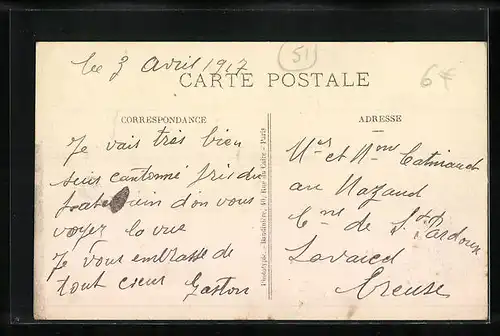 Le 3 Avril 1917
51
6€
CARTE POSTALE
CORRESPONDANCE
Je vais très bien
suis cantonné près du
d'ou vous
voyez la vue
Je vous embrasse de
tout coeur Gaston
Phototypie Baudinière, Rue du Caire - Paris
ADRESSE
Mr et Mme
au Mazaud
Cne de St Pardoux
Lavaud
Creuse